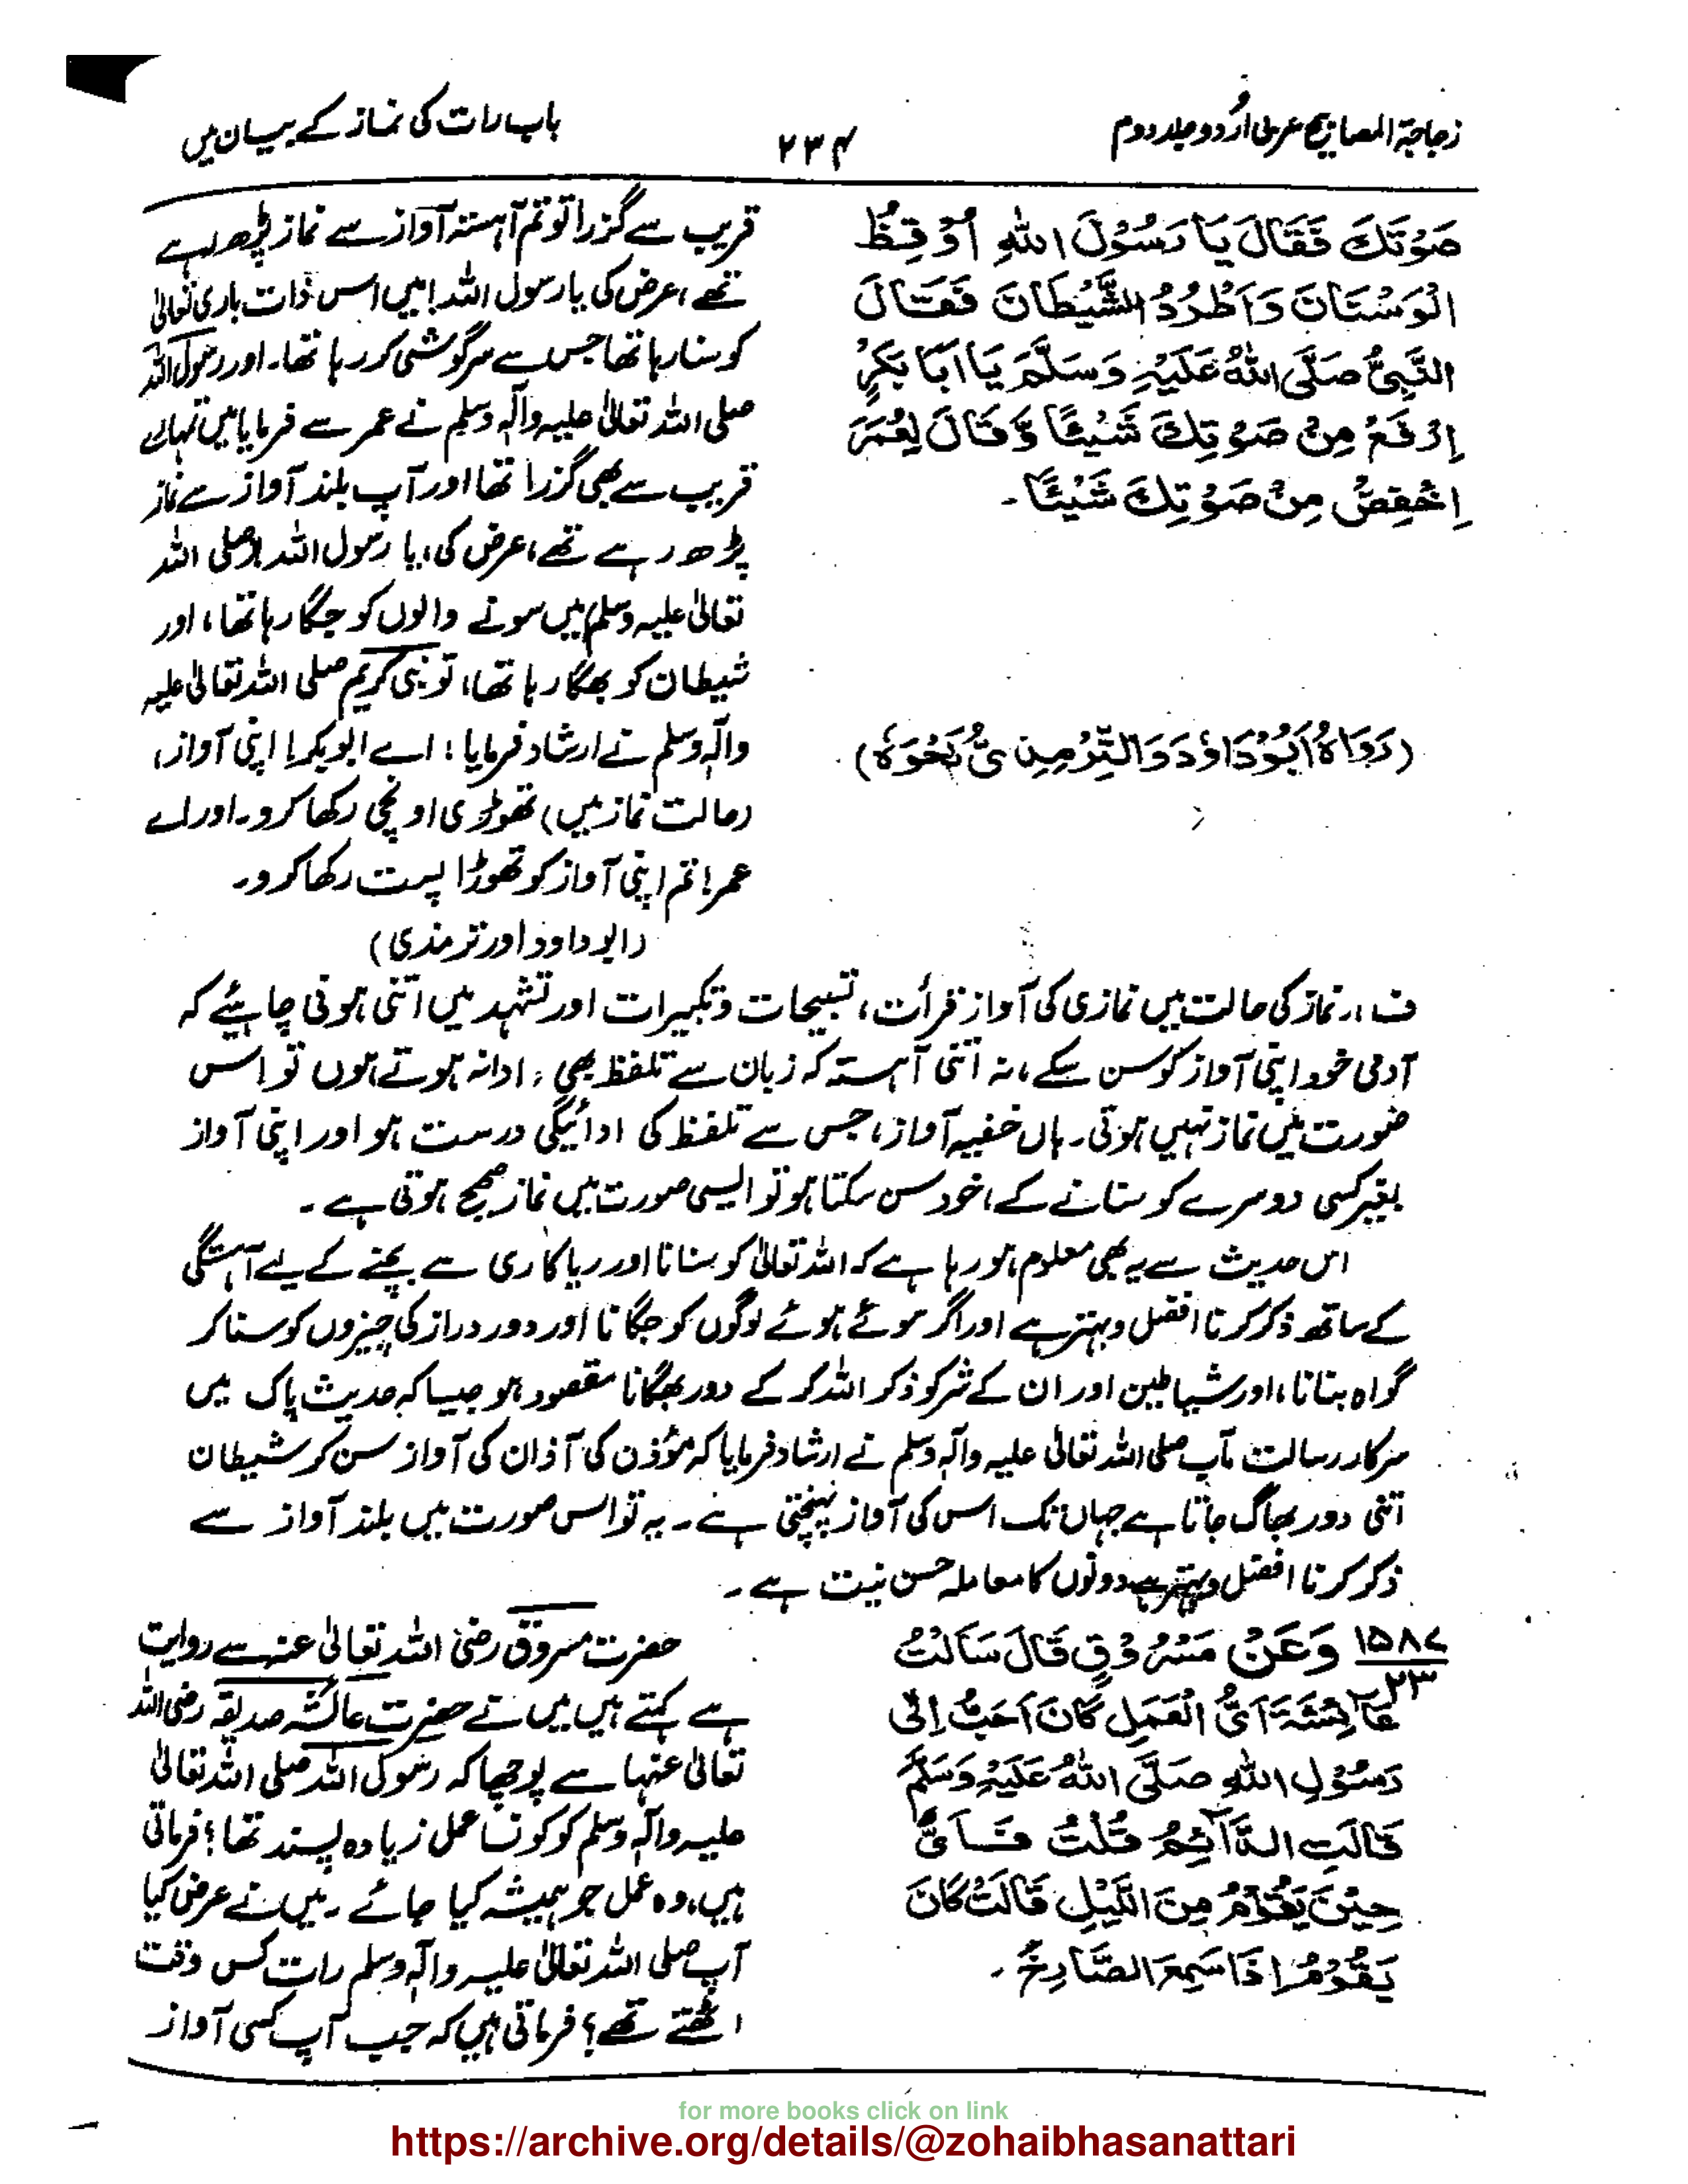 زجاجۃ المصابیح عربی اُردو جلد دوم
۲۳۴
باب رات کی نماز کے بیان میں
صَوْتَكَ فَقَالَ يَا رَسُوْلَ اللهِ اُوْقِظُ
الْوَسْنَانَ وَاَطْرُدُ الشَّيْطَانَ فَقَالَ
النَّبِيُّ صَلَّى اللهُ عَلَيْهِ وَسَلَّمَ يَا اَبَا بَكْرٍ
اِرْفَعْ مِنْ صَوْتِكَ شَيْئًا وَّقَالَ لِعُمَرَ
اِخْفِضْ مِنْ صَوْتِكَ شَيْئًا۔
(رَوَاهُ اَبُوْدَاوٗدَ وَالتِّرْمِذِيُّ نَحْوَهٗ)
قریب سے گزرا تو تم آہستہ آواز سے نماز پڑھ رہے
تھے، عرض کی یا رسول اللہ! میں اس ذات باری تعالیٰ
کو سنا رہا تھا جس سے سرگوشی کر رہا تھا۔ اور رسول اللہ
صلی اللہ تعالیٰ علیہ وآلہٖ وسلم نے عمر سے فرمایا میں تمہارے
قریب سے بھی گزرا تھا اور آپ بلند آواز سے نماز
پڑھ رہے تھے، عرض کی، یا رسول اللہ! (صلی اللہ
تعالیٰ علیہ وسلم) میں سونے والوں کو جگا رہا تھا، اور
شیطان کو بھگا رہا تھا، تو نبی کریم صلی اللہ تعالیٰ علیہ
وآلہٖ وسلم نے ارشاد فرمایا: اے ابوبکر! اپنی آواز،
(حالت نماز میں) تھوڑی اونچی رکھا کرو۔ اور اے
عمر! تم اپنی آواز کو تھوڑا پست رکھا کرو۔
(ابوداود اور ترمذی)
ف:۔ نماز کی حالت میں نمازی کی آواز قرأت، تسبیحات و تکبیرات اور تشہد میں اتنی ہونی چاہئیے کہ
آدمی خود اپنی آواز کو سن سکے، نہ اتنی آہستہ کہ زبان سے تلفظ بھی، ادا نہ ہوتے ہوں تو اس
صورت میں نماز نہیں ہوتی۔ ہاں خفیہ آواز، جس سے تلفظ کی ادائیگی درست ہو اور اپنی آواز
بغیر کسی دوسرے کو سنانے کے، خود سن سکتا ہو تو ایسی صورت میں نماز صحیح ہوتی ہے۔
اس حدیث سے یہ بھی معلوم ہو رہا ہے کہ اللہ تعالیٰ کو سنانا اور ریاکاری سے بچنے کے لیے آہستگی
کے ساتھ ذکر کرنا افضل و بہتر ہے اور اگر سوئے ہوئے لوگوں کو جگانا اور دور دراز کی چیزوں کو سنا کر
گواہ بنانا، اور شیاطین اور ان کے شر کو ذکر اللہ کر کے دور بھگانا مقصود ہو جیسا کہ حدیث پاک میں
سرکار رسالت مآب صلی اللہ تعالیٰ علیہ وآلہٖ وسلم نے ارشاد فرمایا کہ مؤذن کی آذان کی آواز سن کر شیطان
اتنی دور بھاگ جاتا ہے جہاں تک اس کی آواز پہنچتی ہے۔ یہ تو اس صورت میں بلند آواز سے
ذکر کرنا افضل و بہتر ہے دونوں کا معاملہ حسن نیت ہے۔
۱۵۸۷
۲۳
وَعَنْ مَسْرُوْقٍ قَالَ سَاَلْتُ
عَائِشَةَ اَيُّ الْعَمَلِ كَانَ اَحَبَّ اِلٰى
رَسُوْلِ اللهِ صَلَّى اللهُ عَلَيْهِ وَسَلَّمَ
قَالَتِ الدَّآئِمُ قُلْتُ فَاَيَّ
حِيْنَ يَقُوْمُ مِنَ اللَّيْلِ قَالَتْ كَانَ
يَقُوْمُ اِذَا سَمِعَ الصَّارِخَ۔
حضرت مسروق رضی اللہ تعالیٰ عنہ سے روایت
ہے کہتے ہیں میں نے حضرت عائشہ صدیقہ رضی اللہ
تعالیٰ عنہا سے پوچھا کہ رسول اللہ صلی اللہ تعالیٰ
علیہ وآلہٖ وسلم کو کونسا عمل زیادہ پسند تھا؟ فرماتی
ہیں، وہ عمل جو ہمیشہ کیا جائے۔ میں نے عرض کیا
آپ صلی اللہ تعالیٰ علیہ وآلہٖ وسلم رات کس وقت
اٹھتے تھے؟ فرماتی ہیں کہ جب آپ کسی آواز
for more books click on link
https://archive.org/details/@zohaibhasanattari